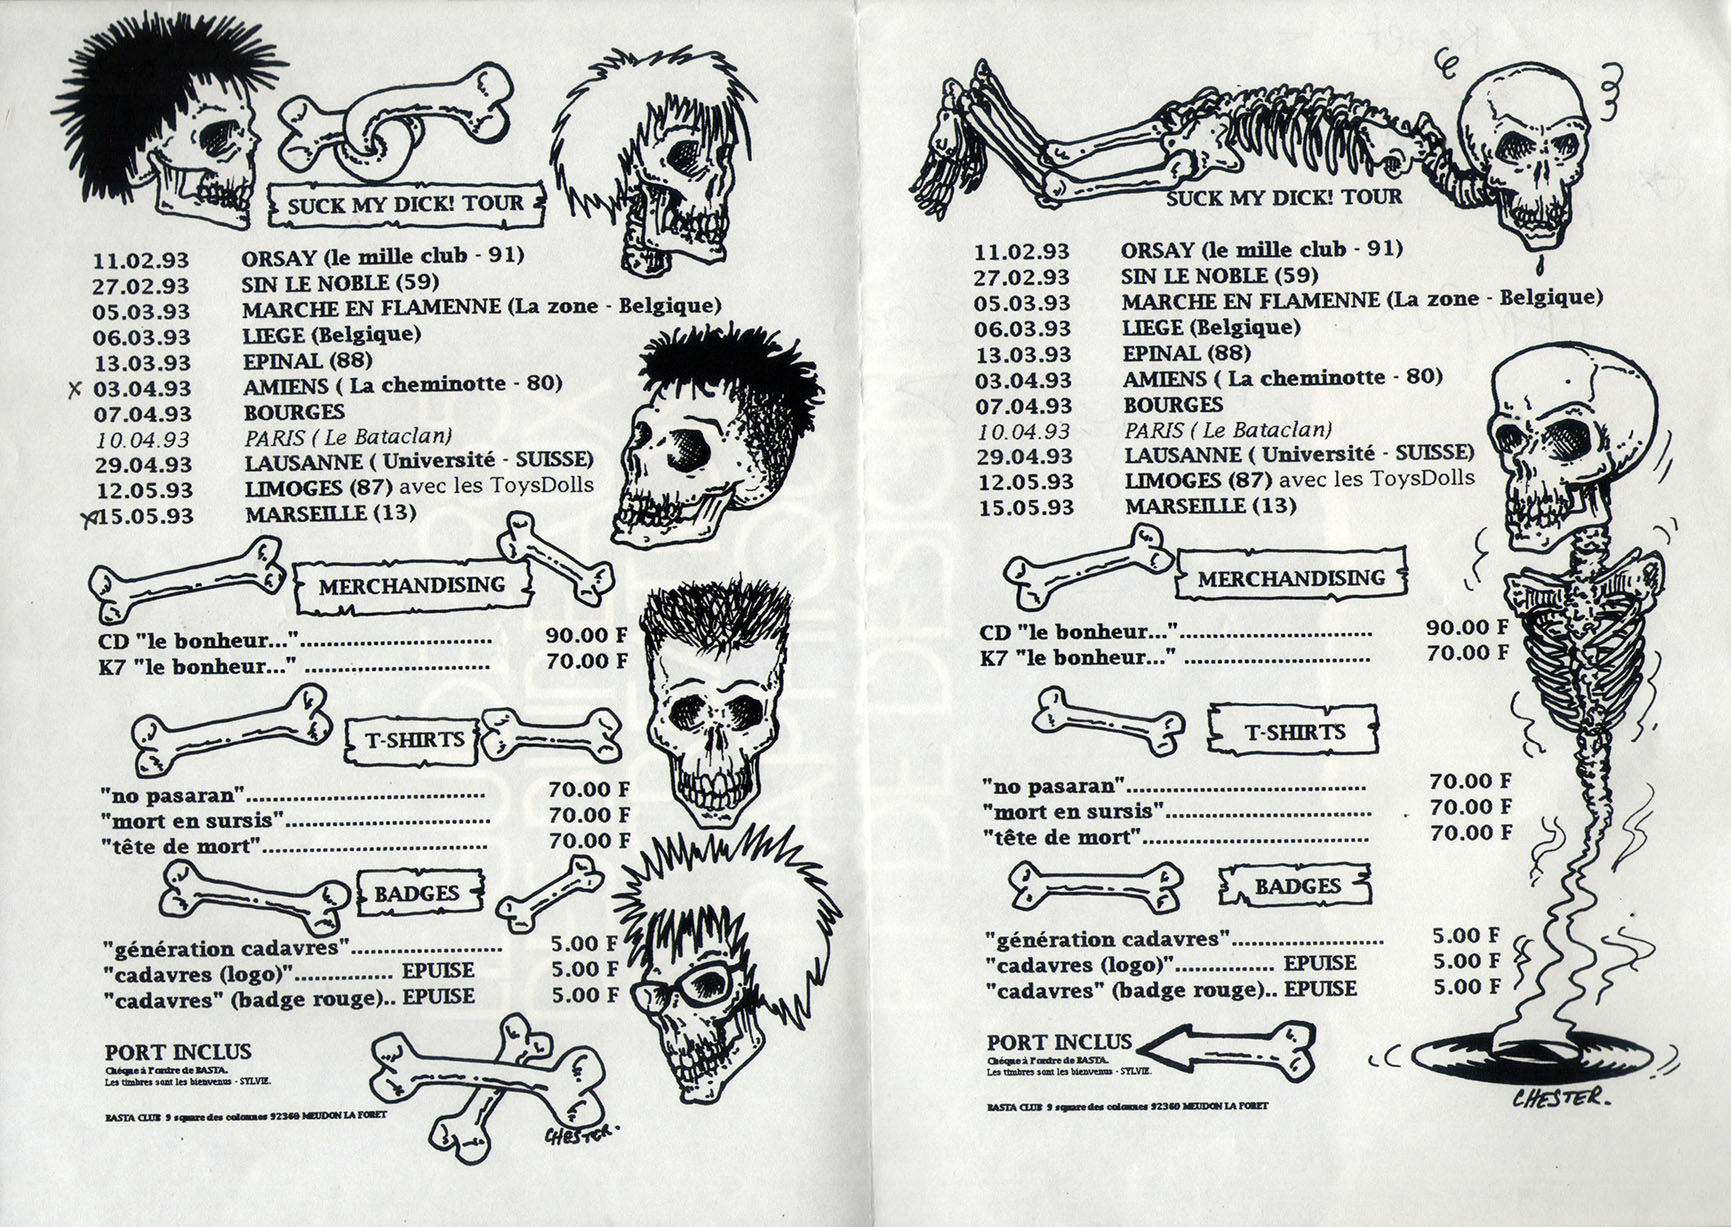 SUCK MY DICK! TOUR
11.02.93 ORSAY (le mille club - 91)
27.02.93 SIN LE NOBLE (59)
05.03.93 MARCHE EN FLAMENNE (La zone - Belgique)
06.03.93 LIEGE (Belgique)
13.03.93 EPINAL (88)
x 03.04.93 AMIENS ( La cheminotte - 80)
07.04.93 BOURGES
10.04.93 PARIS ( Le Bataclan)
29.04.93 LAUSANNE ( Université - SUISSE)
12.05.93 LIMOGES (87) avec les ToysDolls
x 15.05.93 MARSEILLE (13)
MERCHANDISING
CD "le bonheur..."............................... 90.00 F
K7 "le bonheur..." .............................. 70.00 F
T-SHIRTS
"no pasaran"....................................... 70.00 F
"mort en sursis"................................. 70.00 F
"tête de mort"..................................... 70.00 F
BADGES
"génération cadavres"......................... 5.00 F
"cadavres (logo)"................ EPUISE 5.00 F
"cadavres" (badge rouge).. EPUISE 5.00 F
PORT INCLUS
Chéque à l'ordre de BASTA.
Les timbres sont les bienvenus - SYLVIE.
BASTA CLUB 9 square des colonnes 92360 MEUDON LA FORET
CHESTER.
SUCK MY DICK! TOUR
11.02.93 ORSAY (le mille club - 91)
27.02.93 SIN LE NOBLE (59)
05.03.93 MARCHE EN FLAMENNE (La zone - Belgique)
06.03.93 LIEGE (Belgique)
13.03.93 EPINAL (88)
03.04.93 AMIENS ( La cheminotte - 80)
07.04.93 BOURGES
10.04.93 PARIS ( Le Bataclan)
29.04.93 LAUSANNE ( Université - SUISSE)
12.05.93 LIMOGES (87) avec les ToysDolls
15.05.93 MARSEILLE (13)
MERCHANDISING
CD "le bonheur..."............................... 90.00 F
K7 "le bonheur..." .............................. 70.00 F
T-SHIRTS
"no pasaran"....................................... 70.00 F
"mort en sursis"................................. 70.00 F
"tête de mort"..................................... 70.00 F
BADGES
"génération cadavres"......................... 5.00 F
"cadavres (logo)"................ EPUISE 5.00 F
"cadavres" (badge rouge).. EPUISE 5.00 F
PORT INCLUS
Chéque à l'ordre de BASTA.
Les timbres sont les bienvenus - SYLVIE.
BASTA CLUB 9 square des colonnes 92360 MEUDON LA FORET
CHESTER.